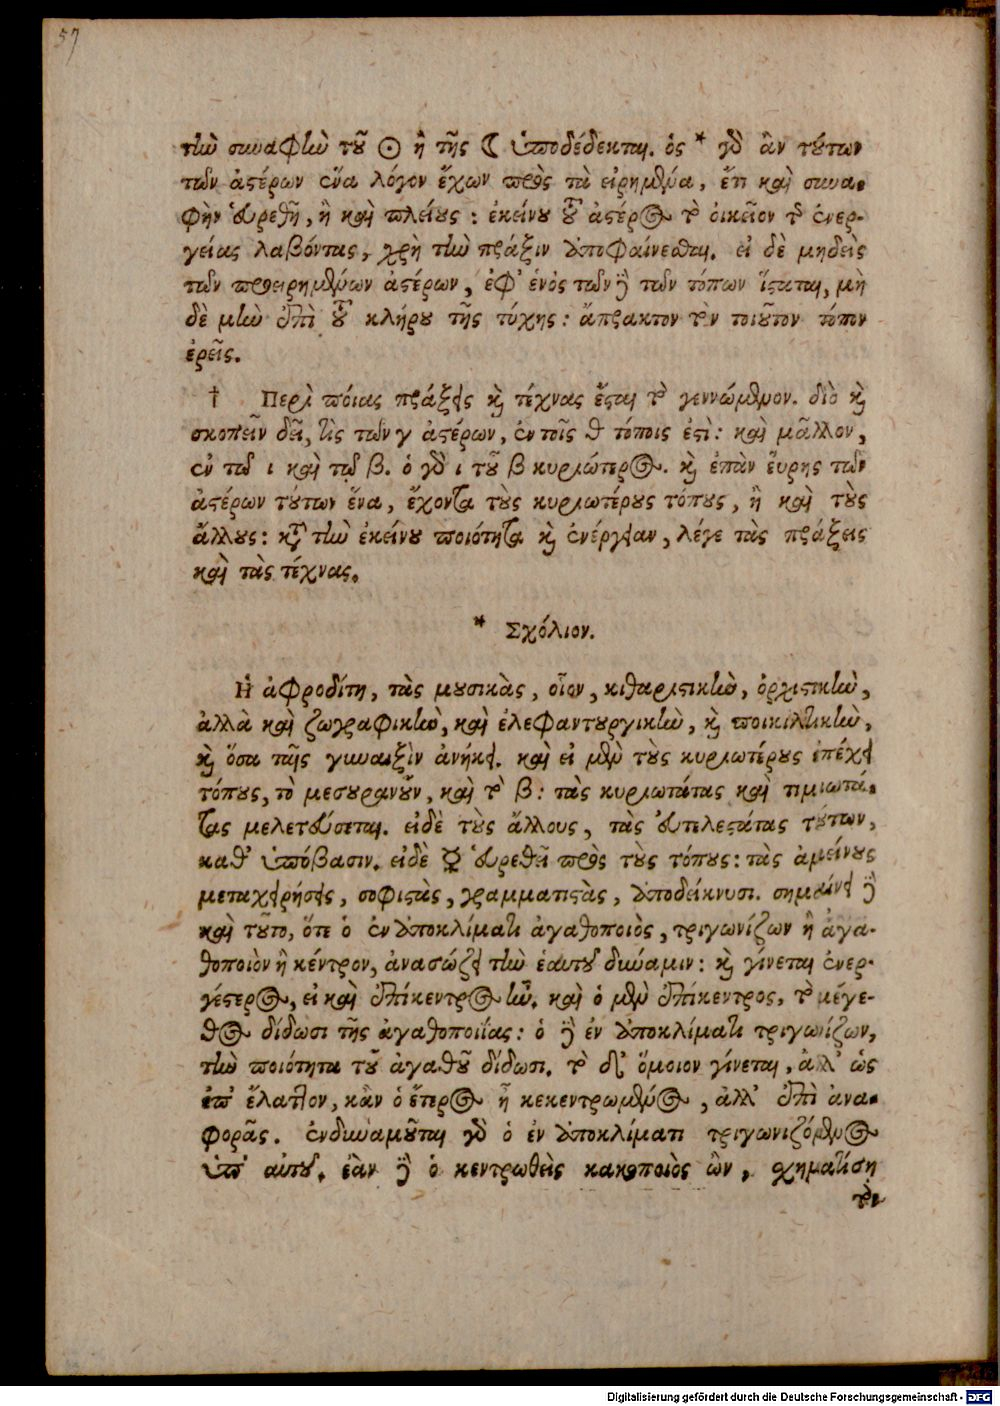 57
τὴν συναφὴν τοῦ ☉ ἢ τῆς ☾ ὑποδέδεκται. ὁς * γὸ ἂν τούτων
τῶν ἀστέρων ἕνα λόγον ἔχων πρὸς τὰ εἰρημένα, ἔτι καὶ συνα-
φὴν εὑρεθῆ, ἢ καὶ πλείους : ἐκείνου τοῦ ἀστέρος τὸ οἰκεῖον τῆς ἐνερ-
γείας λαβόντας, χρὴ τὴν πράξιν ἀποφαίνεσθαι. εἰ δὲ μηδεὶς
τῶν προειρημένων ἀστέρων, ἐφ' ἑνὸς τῶν γ τῶν τόπων ἵσταται, μὴ
δὲ μὴν ἐπὶ τοῦ κλήρου τῆς τύχης : ἄπρακτον τὸν τοιοῦτον τόπον
ἐρεῖς.
† Περὶ ποίας πράξεις καὶ τέχνας ἔσται τὸ γεννώμενον. διὸ καὶ
σκοπεῖν δεῖ, τίς τῶν γ ἀστέρων, ἐν τοῖς θ τόποις ἐστὶ : καὶ μᾶλλον,
ἐν τῷ ι καὶ τῷ β. ὁ γὸ ι τοῦ β κυριώτερος. καὶ ἐπὰν εὕρης τῶν
ἀστέρων τούτων ἕνα, ἔχοντα τοὺς κυριωτέρους τόπους, ἢ καὶ τοὺς
ἄλλους : κατὰ τὴν ἐκείνου ποιότητα καὶ ἐνέργειαν, λέγε τὰς πράξεις
καὶ τὰς τέχνας.
* Σχόλιον.
Ἡ ἀφροδίτη, τὰς μουσικὰς, οἷον, κιθαριστικὴν, ὀρχιστικὴν,
ἀλλὰ καὶ ζωγραφικὴν, καὶ ἐλεφαντουργικὴν, καὶ ποικιλτικὴν,
καὶ ὅσα ταῖς γυναιξὶν ἀνήκει. καὶ εἰ μὲν τοὺς κυριωτέρους ἐπέχει
τόπους, τὸ μεσουρανοῦν, καὶ τὸ β : τὰς κυριωτάτας καὶ τιμιωτά-
τας μελετεύσεται. εἰδὲ τοὺς ἄλλους, τὰς εὐτελεστάτας τούτων,
καθ' ὑπόβασιν. εἰδὲ ☿ εὑρεθεῖ πρὸς τοὺς τόπους : τὰς ἀμείνους
μεταχειρήσεις, σοφιστὰς, γραμματιστὰς, ἀποδείκνυσι. σημαίνει δὲ
καὶ τοῦτο, ὅτε ὁ ἐν ἀποκλίματι ἀγαθοποιὸς, τριγωνίζων ἢ ἀγα-
θοποιὸν ἢ κέντρον, ἀνασώζει τὴν ἑαυτοῦ δύναμιν : καὶ γίνεται ἐνερ-
γέστερος, εἰ καὶ ἐπίκεντρος ἦν. καὶ ὁ μὲν ἐπίκεντρος, τὸ μέγε-
θος δίδωσι τῆς ἀγαθοποιΐας : ὁ δὲ ἐν ἀποκλίματι τριγωνίζων,
τὴν ποιότητα τοῦ ἀγαθοῦ δίδωσι. τὸ δ' ὅμοιον γίνεται, ἀλλ' ὡς
ἐπ' ἔλαττον, κἂν ὁ ἕτερος ᾖ κεκεντρωμένος, ἀλλ' ἐπὶ ἀνα-
φορᾶς. ἐνδυναμοῦται γὸ ὁ ἐν ἀποκλίματι τριγωνιζόμενος
ὑπ' αὐτοῦ. ἐὰν δὲ ὁ κεντρωθεὶς κακοποιὸς ὢν, σχηματίση
τὸν
Digitalisierung gefördert durch die Deutsche Forschungsgemeinschaft - DFG